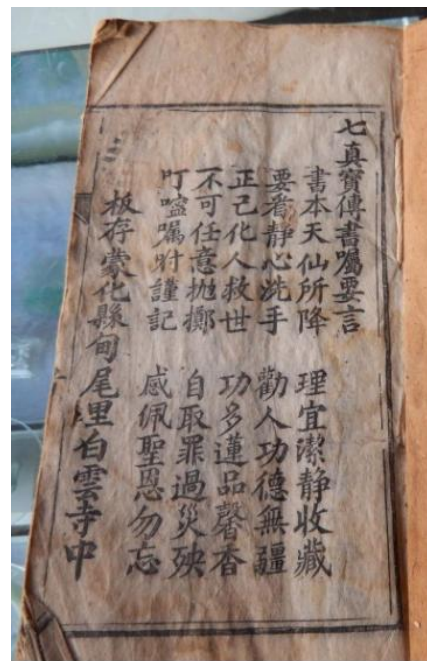 七真寶傳書囑要言
書本天仙所降 理宜潔靜收藏
要看靜心洗手 勸人功德無疆
正己化人救世 功多蓮品馨香
不可任意拋擲 自取罪過災殃
叮嚀囑咐謹記 感佩聖恩勿忘
板存蒙化縣甸尾里白雲寺中